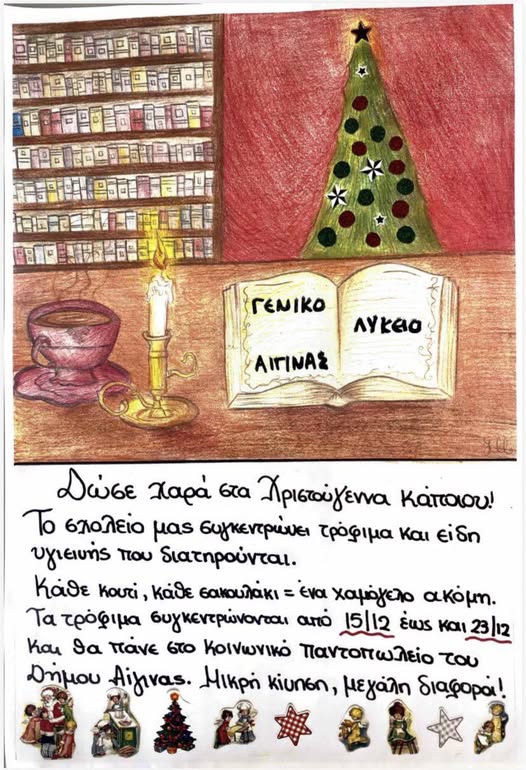 ΓΕΝΙΚΟ
ΛΥΚΕΙΟ
ΑΙΓΙΝΑΣ
Δώσε χαρά στα Χριστούγεννα κάποιου!
Το σχολείο μας συγκεντρώνει τρόφιμα και είδη
υγιεινής που διατηρούνται.
Κάθε κουτί, κάθε σακουλάκι = ένα χαμόγελο ακόμη.
Τα τρόφιμα συγκεντρώνονται από 15/12 έως και 23/12
και θα πάνε στο κοινωνικό παντοπωλείο του
Δήμου Αίγινας. Μικρή κίνηση, μεγάλη διαφορά!